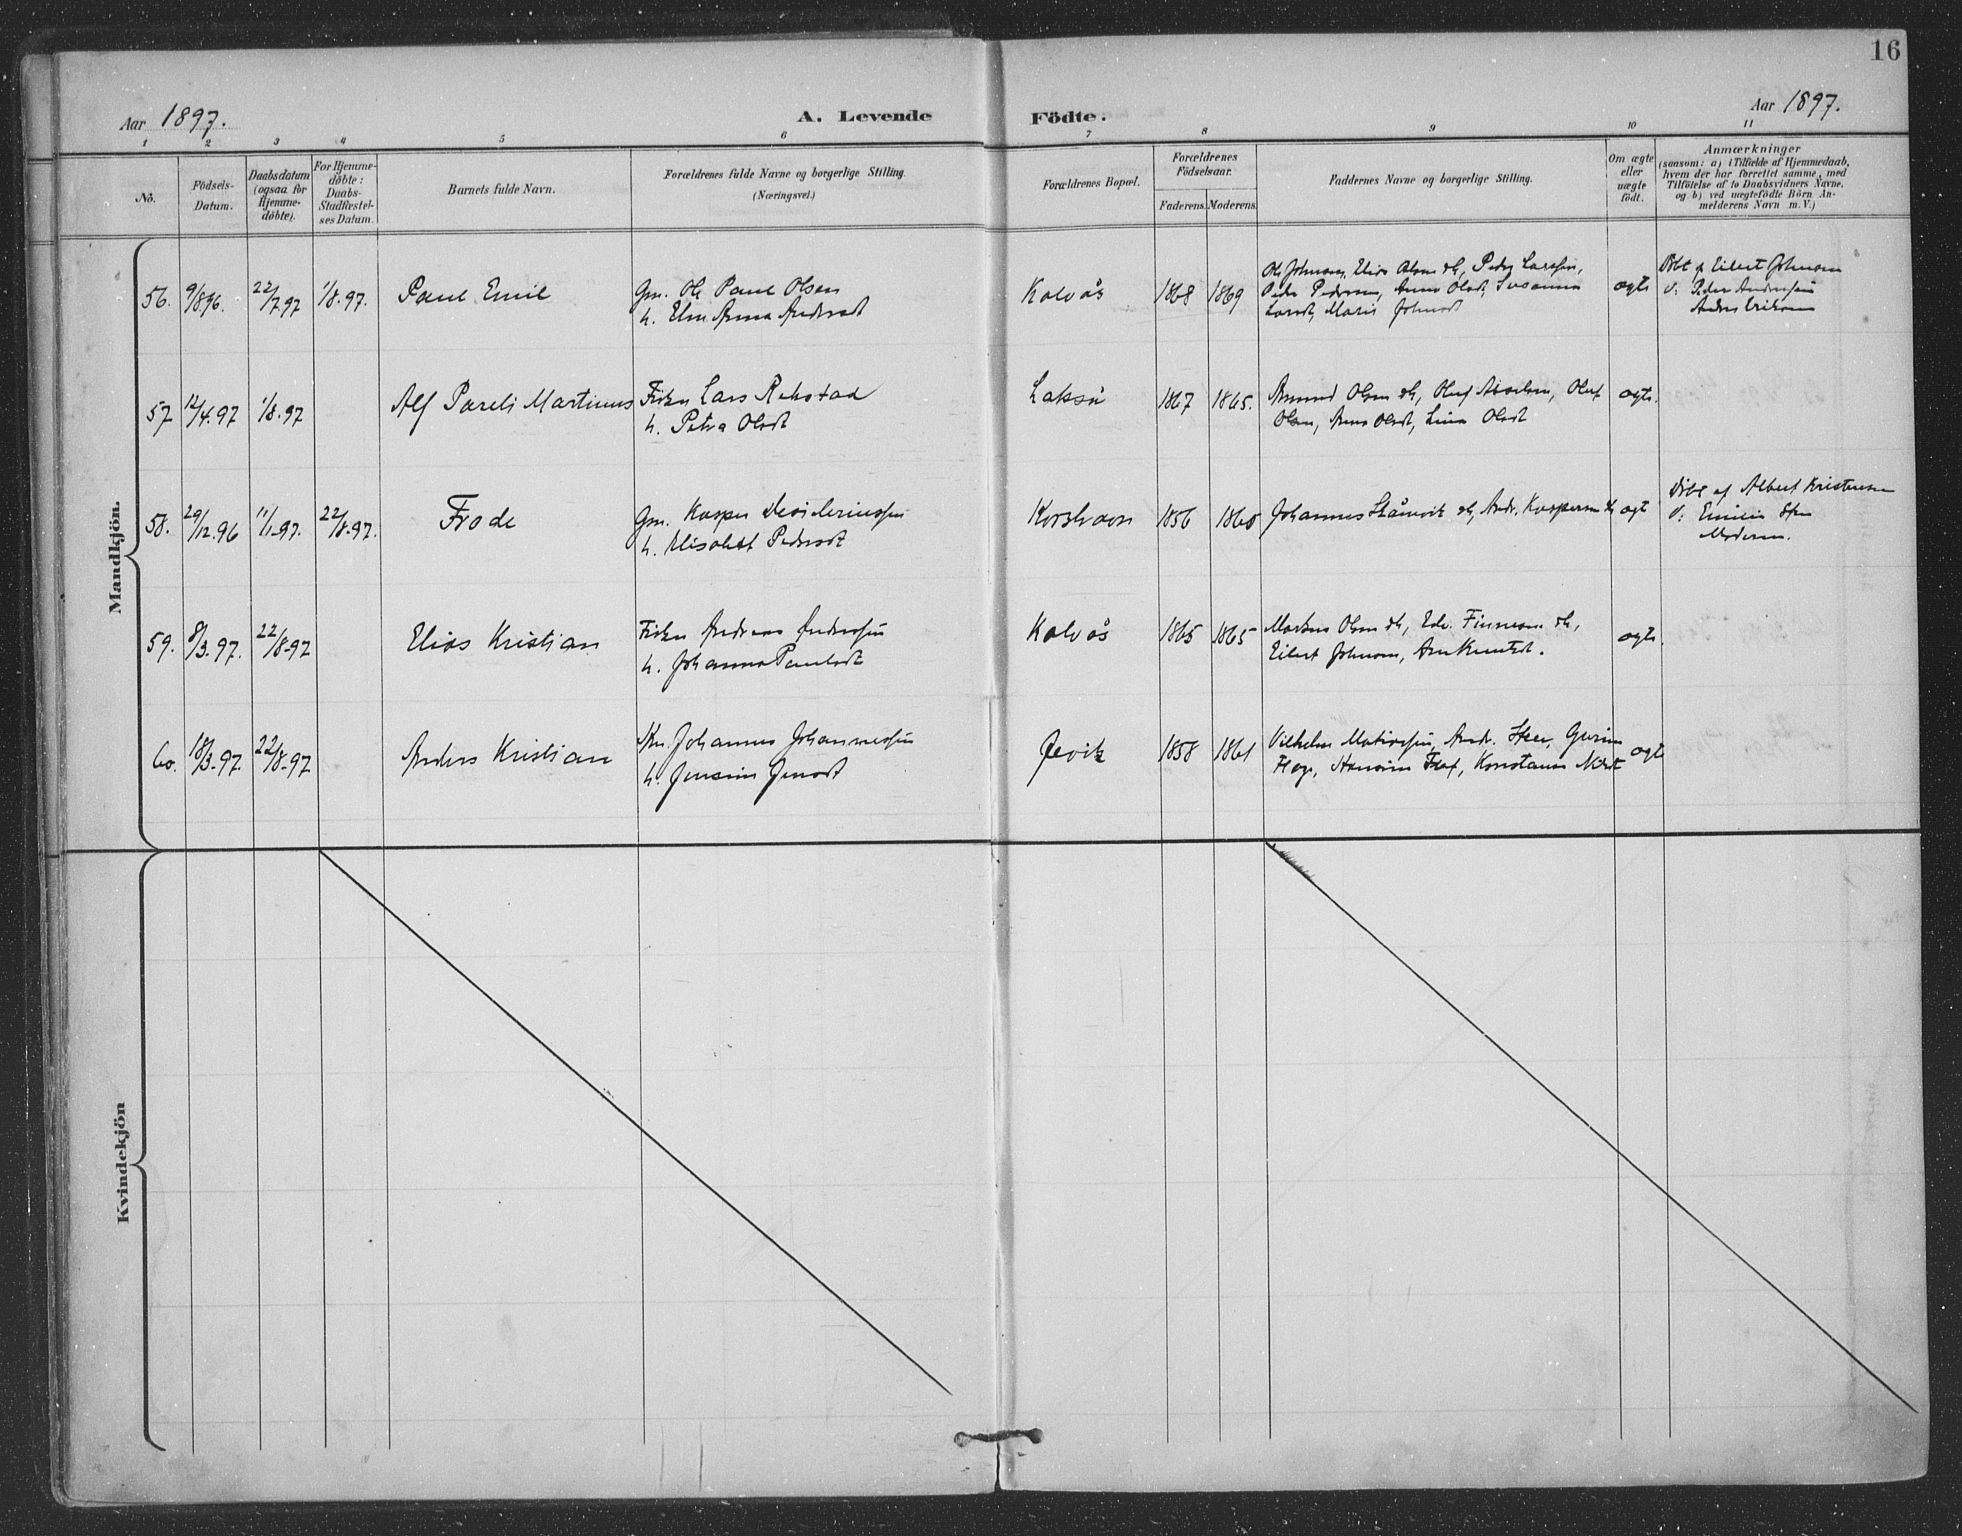 16
Aar 1897.
A. Levende Födte.
Aar 1897.
1 2 3 4 5 6 7 8 9 10 11
No.
Födsels-
Datum.
Daabsdatum
(ogsaa for
Hjemme-
döbte).
For Hjemme-
döbte:
Daabs-
Stadfæstel-
ses Datum.
Barnets fulde Navn.
Forældrenes fulde Navne og borgerlige Stilling.
(Næringsvei.)
Forældrenes Bopæl.
Forældrenes
Födselsaar.
Faderens.
Moderens.
Faddernes Navne og borgerlige Stilling.
Om ægte
eller
uægte
födt.
Anmærkninger
(saasom: a) i Tilfælde af Hjemmedaab,
hvem der har forrettet samme, med
Tilföielse af to Daabsvidners Navne,
og b) ved uægtefödte Börn An-
melderens Navn m. V.)
Mandkjön.
56. 9/8.96. 22/7.97 1/8.97. Paul Emil
Gm. Ole Paul Olsen
h. Elen Anna Andersdt
Kalvås 1868 1869
Ole Johnsen, Elias Olsen Peder Larssen,
Peder Pedersen, Anna Olsdt, Susanna
Larsdt, Marie Johnsdt
ægte
Döbt af Eilert Johnsen
v: Peder Andersen
Anders Eriksen
57 12/4.97 1/8.97 Alf Pareli Martinus
Fisker Lars Rekstad
h. Petra Olsdt
Laksü 1867 1865.
Amund Olsen Oluf Olsen, Anna Olsdt, Lina Olsdt
ægte.
58. 29/12.96 11/1.97. 22/8.97. Frode
Gm. Kasper Desideriussen
h. Elisabet Pedersdt
Korshavn 1856 1860
Johannes Skånvik Andr. Kaspersen
ægt
Döbt af Albert Kristensen
v: Emilie Steen
Moderen.
59. 8/3.97. 22/8.97 Elias Kristian
Fisker Andreas Anderssen
h. Johanna Paulsdt
Kalvås 1865 1865
Markus Olsen Edv. Finnesen
Eilert Johnsen, Ane Knutsdt.
ægte.
60. 18/3.97. 22/8.97 Anders Kristian
Johannes Johannessen
h. Jensine Jensdt
Jevik 1858 1861
Vilhelm Mathissen, Andr. Steen, Gurine
Konstanse
ægte
Kvindekjön